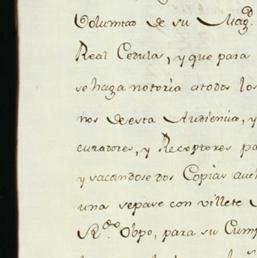 Voluntad de su Mag.d
Real Cedula, y que para
se haga notoria atodos los
ños deesta Audiencia, y
curadores, y Receptores pa
y sacandose dos Copias aut
una sepase con villete
Sr. Obpo, para su Cump